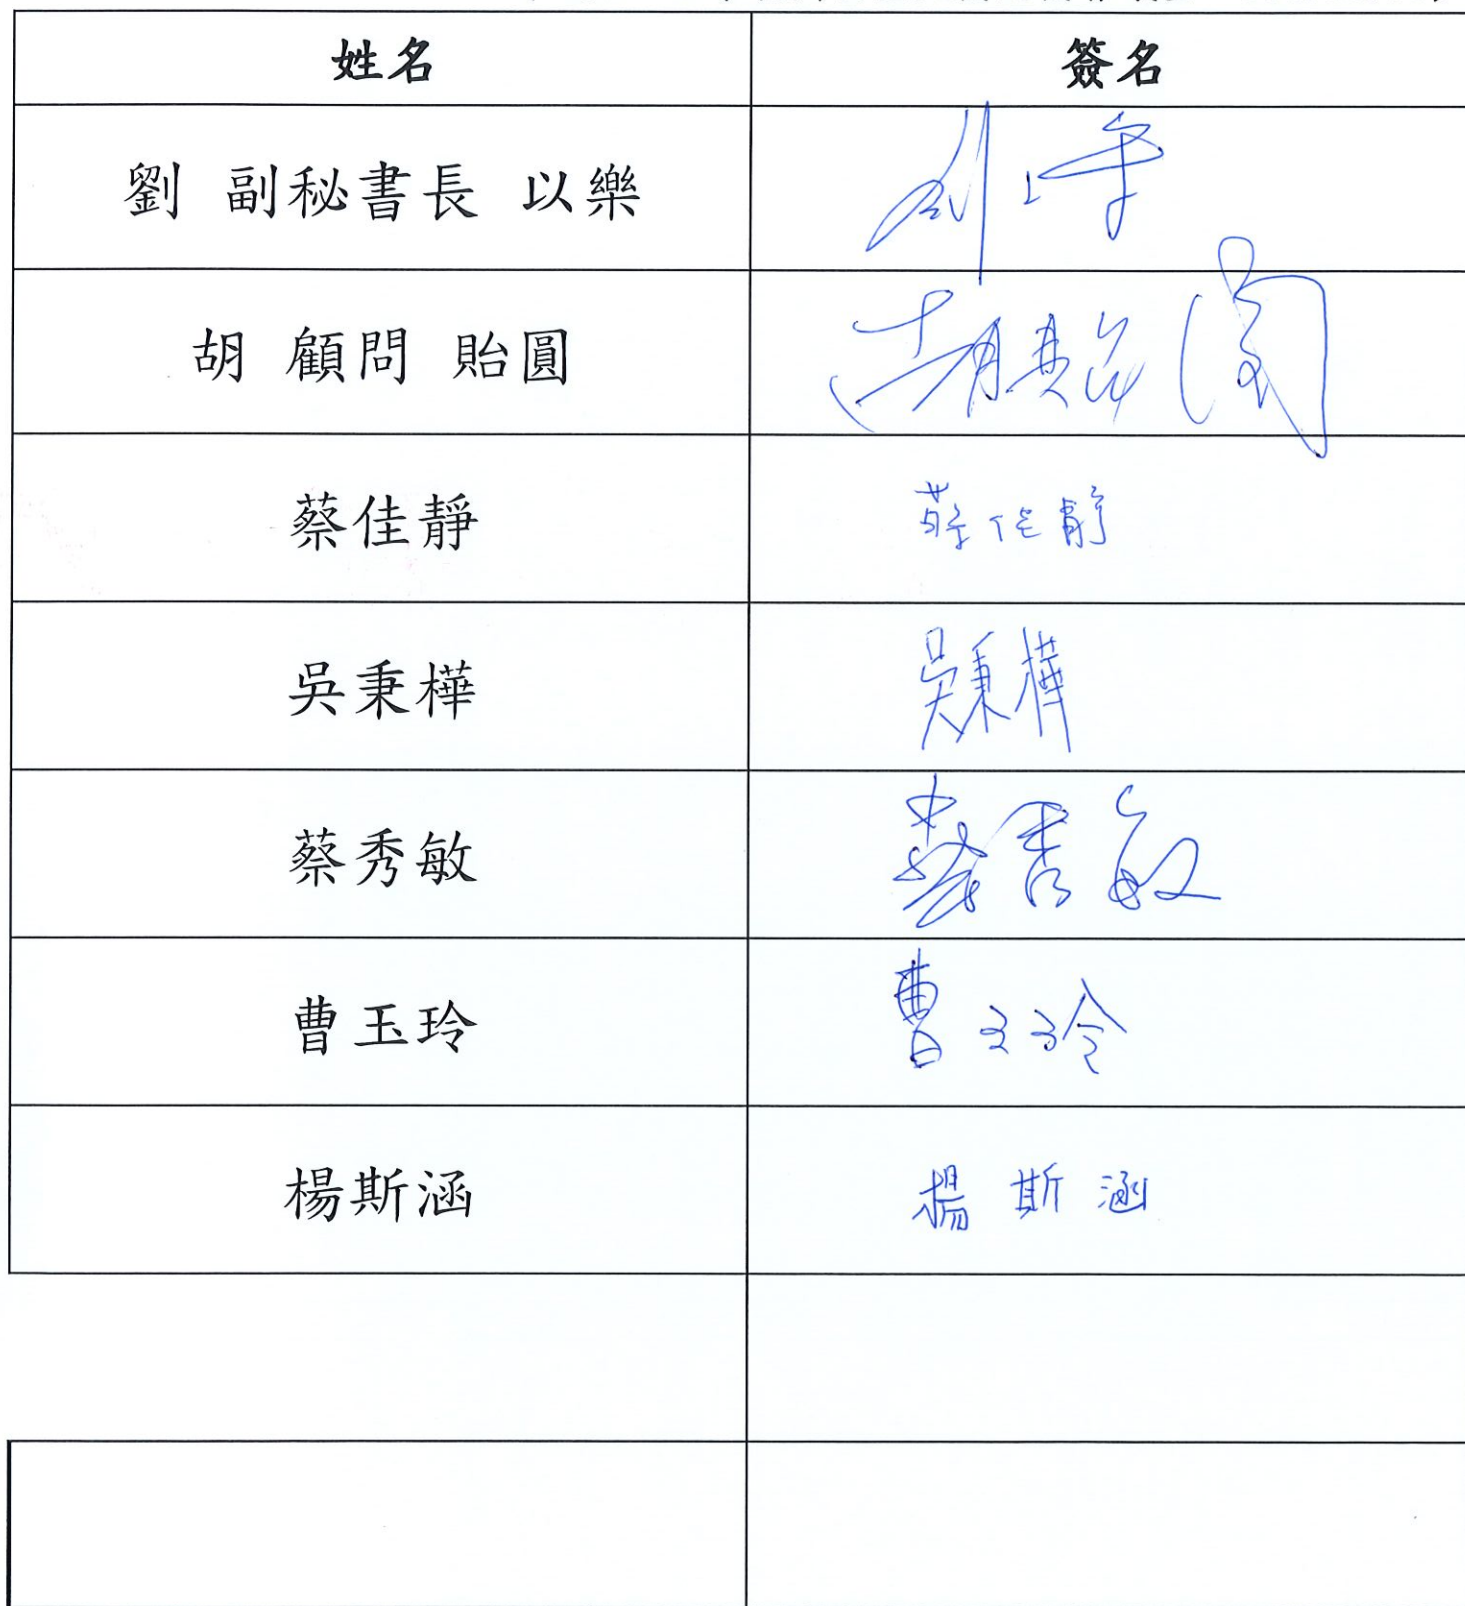 姓名 簽名
劉 副秘書長 以樂
胡 顧問 貽圓 胡貽圓
蔡佳靜 蔡佳靜
吳秉樺 吳秉樺
蔡秀敏 蔡秀敏
曹玉玲 曹玉玲
楊斯涵 楊斯涵